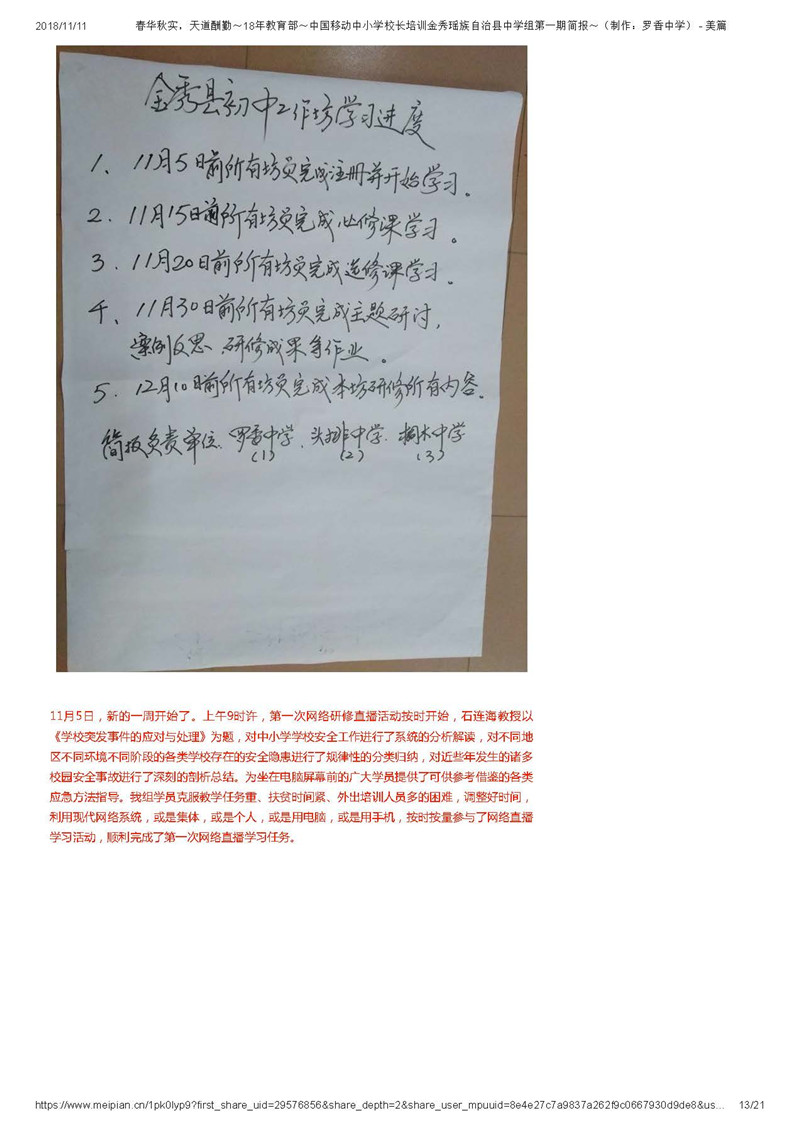 2018/11/11 春华秋实，天道酬勤～18年教育部～中国移动中小学校长培训金秀瑶族自治县中学组第一期简报～（制作：罗香中学） - 美篇
金秀县初中工作坊学习进度
1、11月5日前所有坊员完成注册并开始学习。
2．11月15日前所有坊员完成必修课学习。
3．11月20日前所有坊员完成选修课学习。
4、11月30日前所有坊员完成主题研讨，
案例反思、研修成果等作业。
5．12月10日前所有坊员完成本坊研修所有内容。
简报负责单位：罗香中学、头排中学、桐木中学
(1) (2) (3)
11月5日，新的一周开始了。上午9时许，第一次网络研修直播活动按时开始，石连海教授以
《学校突发事件的应对与处理》为题，对中小学学校安全工作进行了系统的分析解读，对不同地
区不同环境不同阶段的各类学校存在的安全隐患进行了规律性的分类归纳，对近些年发生的诸多
校园安全事故进行了深刻的剖析总结。为坐在电脑屏幕前的广大学员提供了可供参考借鉴的各类
应急方法指导。我组学员克服教学任务重、扶贫时间紧、外出培训人员多的困难，调整好时间，
利用现代网络系统，或是集体，或是个人，或是用电脑，或是用手机，按时按量参与了网络直播
学习活动，顺利完成了第一次网络直播学习任务。
https://www.meipian.cn/1pk0lyp9?first_share_uid=29576856&share_depth=2&share_user_mpuuid=8e4e27c7a9837a262f9c0667930d9de8&us... 13/21